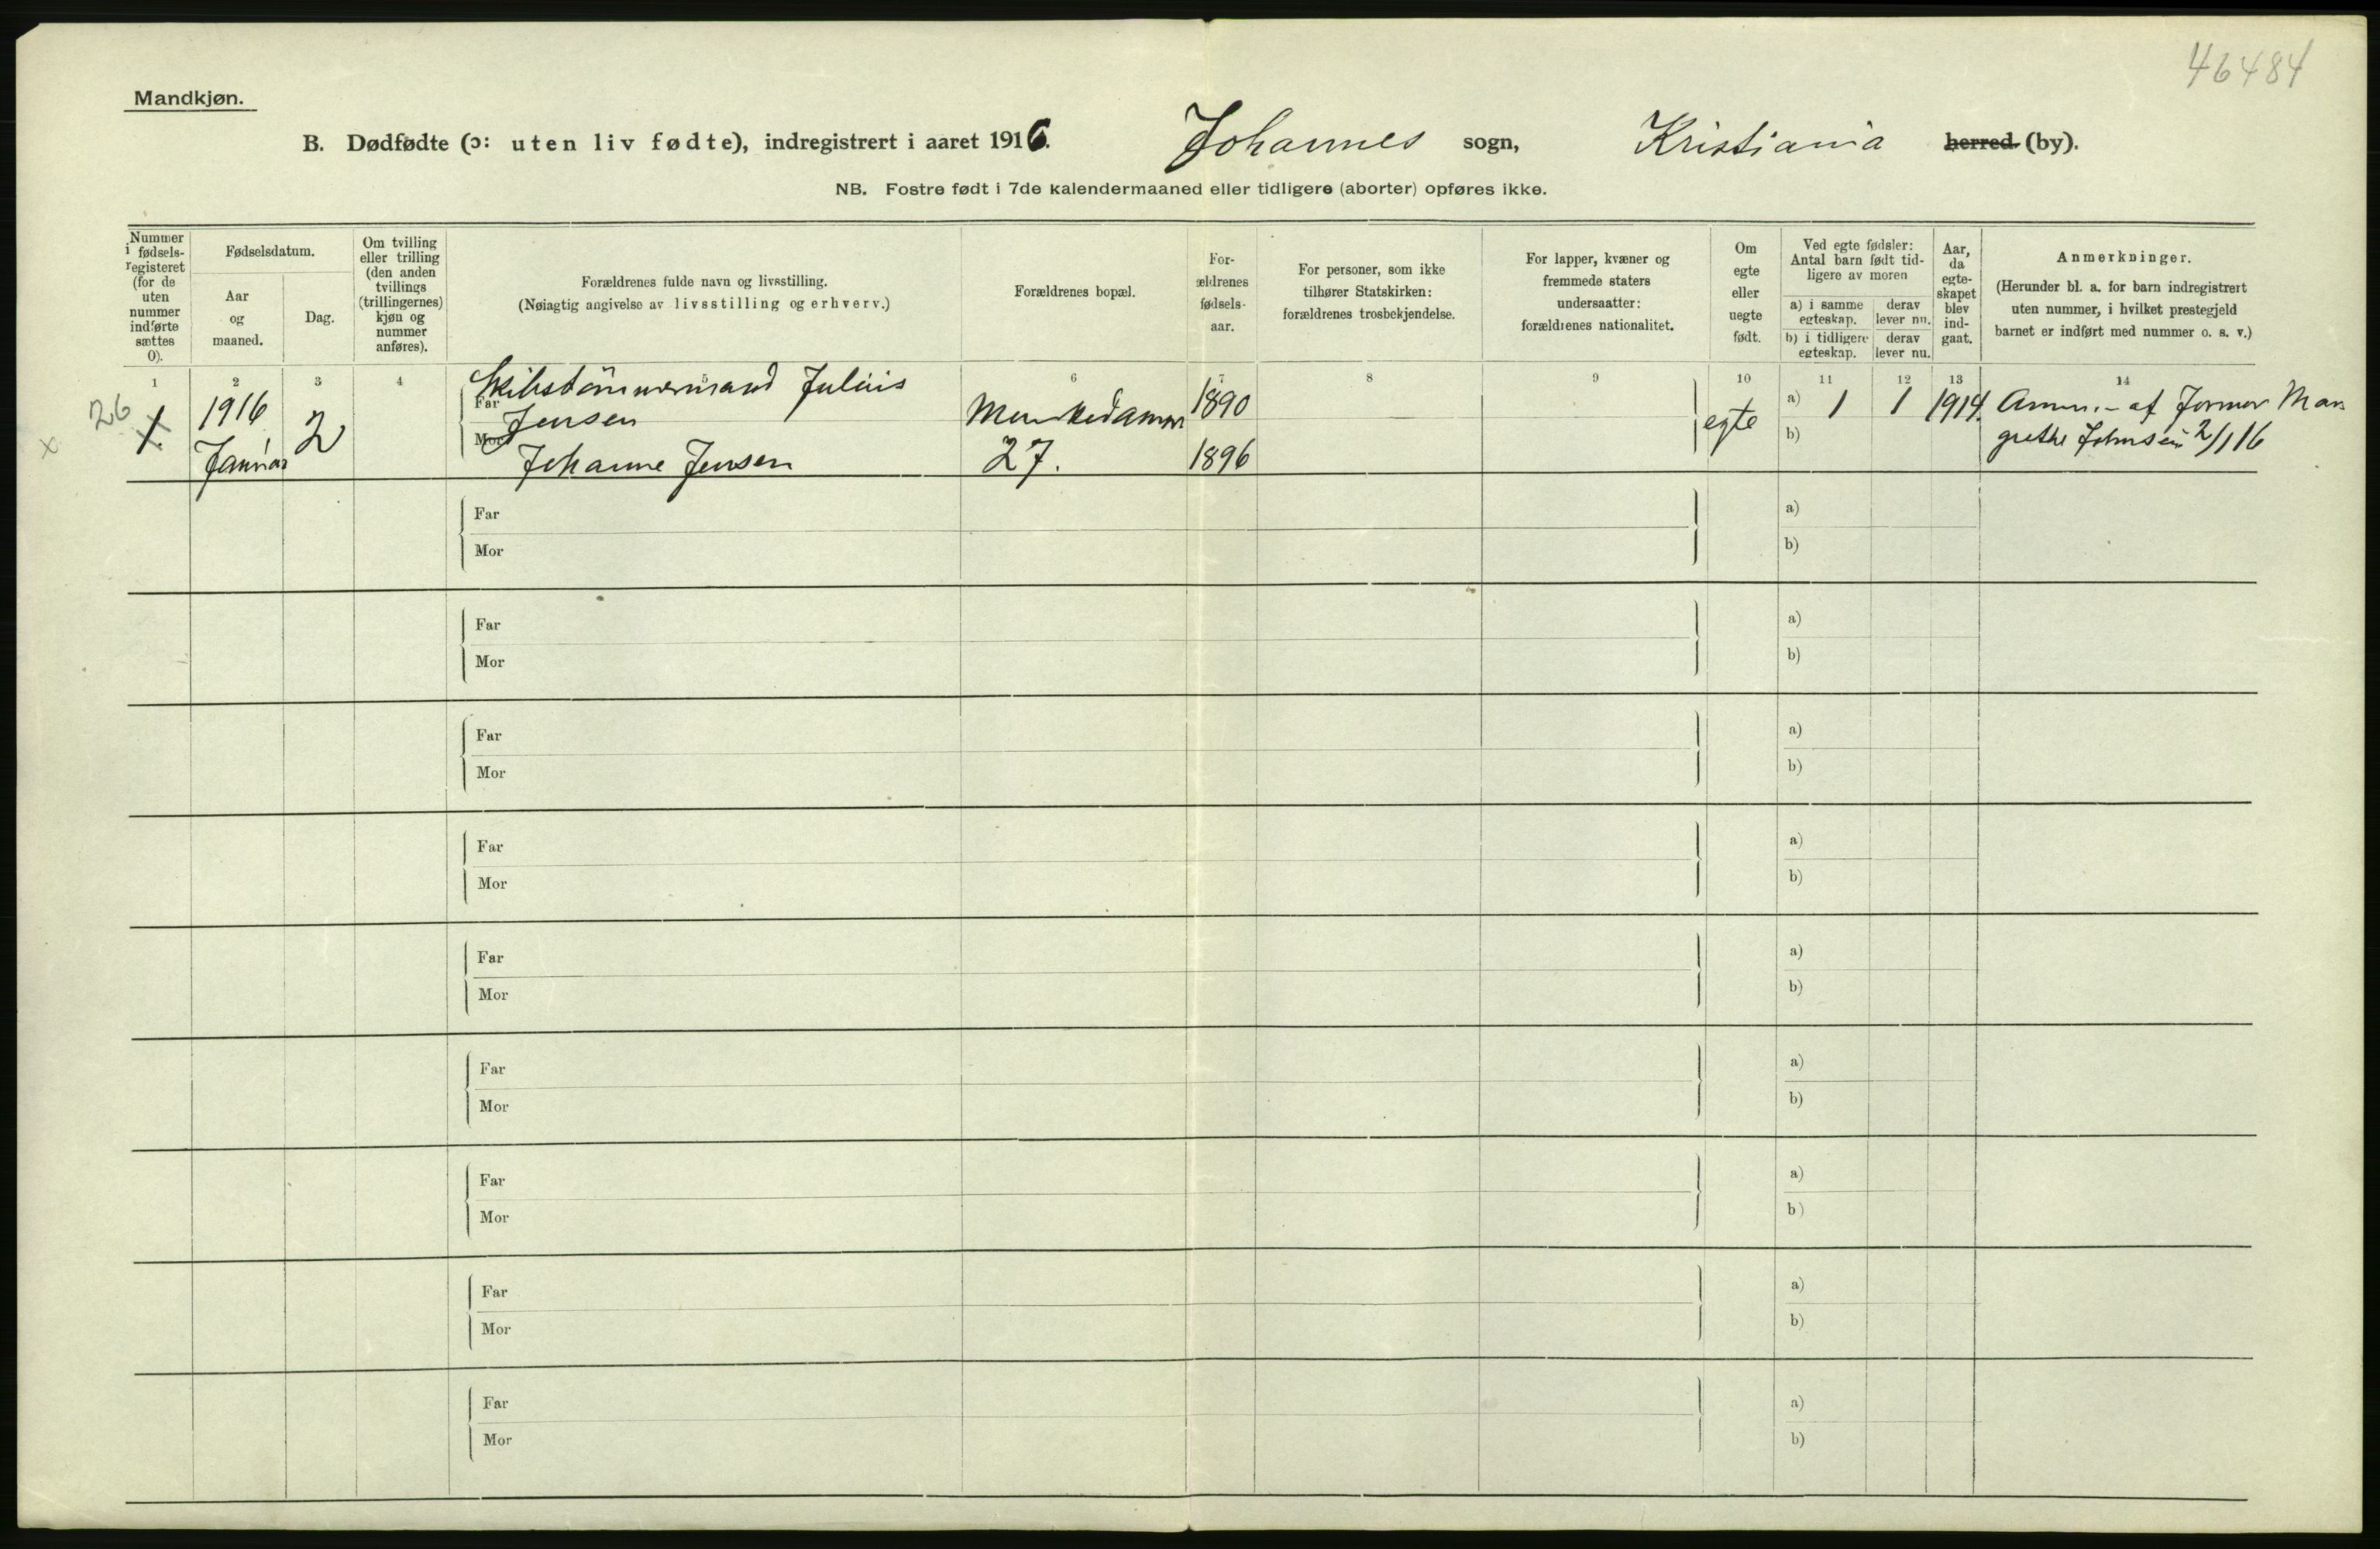 46484
Mandkjøn.
B. Dødfødte (ɔ: uten liv fødte), indregistrert i aaret 1916. Johannes sogn, Kristiania herred (by).
NB. Fostre født i 7de kalendermaaned eller tidligere (aborter) opføres ikke.
Nummer i fødsels-registeret (for de uten nummer indførte sættes 0).
Fødselsdatum.
Aar og maaned.
Dag.
Om tvilling eller trilling (den anden tvillings (trillingernes) kjøn og nummer anføres).
Forældrenes fulde navn og livsstilling.
(Nøiagtig angivelse av livsstilling og erhverv.)
Forældrenes bopæl.
For-ældrenes fødsels-aar.
For personer, som ikke tilhører Statskirken: forældrenes trosbekjendelse.
For lapper, kvæner og fremmede staters undersaatter: forældrenes nationalitet.
Om egte eller uegte født.
Ved egte fødsler: Antal barn født tid-ligere av moren
a) i samme egteskap. derav lever nu.
b) i tidligere egteskap. derav lever nu.
Aar, da egte-skapet blev ind-gaat.
Anmerkninger.
(Herunder bl. a. for barn indregistrert uten nummer, i hvilket prestegjeld barnet er indført med nummer o. s. v.)
1 2 3 4 5 6 7 8 9 10 11 12 13 14
26 1. 1916 Januar 2
Far Skibstømmermand Julius Jensen
Munkedamm 27.
1890
Mor Johanne Jensen
1896
egte
a) 1 1 1914.
b)
Anm. af Jormor Mar
grethe Johnsen 2/1 16
Far a)
Mor b)
Far a)
Mor b)
Far a)
Mor b)
Far a)
Mor b)
Far a)
Mor b)
Far a)
Mor b)
Far a)
Mor b)
Far a)
Mor b)
Far a)
Mor b)